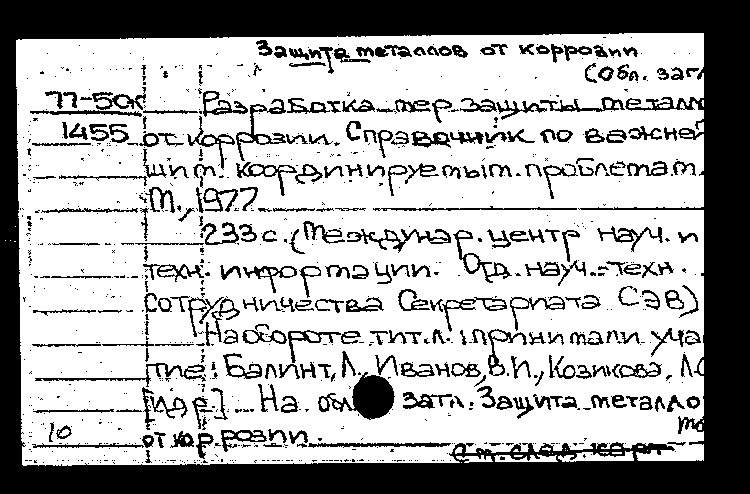 Защита металлов от коррозии
(Обл. загл
77-50к Разработка мер защиты металло
1455 от коррозии. Справочник по важней
шим. координируемым. проблемам.
М., 1977
233 с. (Междунар. центр науч. и
техн. информации. Отд. науч.-техн.
сотрудничества Секретариата СЭВ)
На обороте тит. л.: принимали уча
тие: Балинт, Л., Иванов, В.И., Козикова, Л.
[и др.] На обл загл. Защита металло
10 от коррозии.
См. след. карт